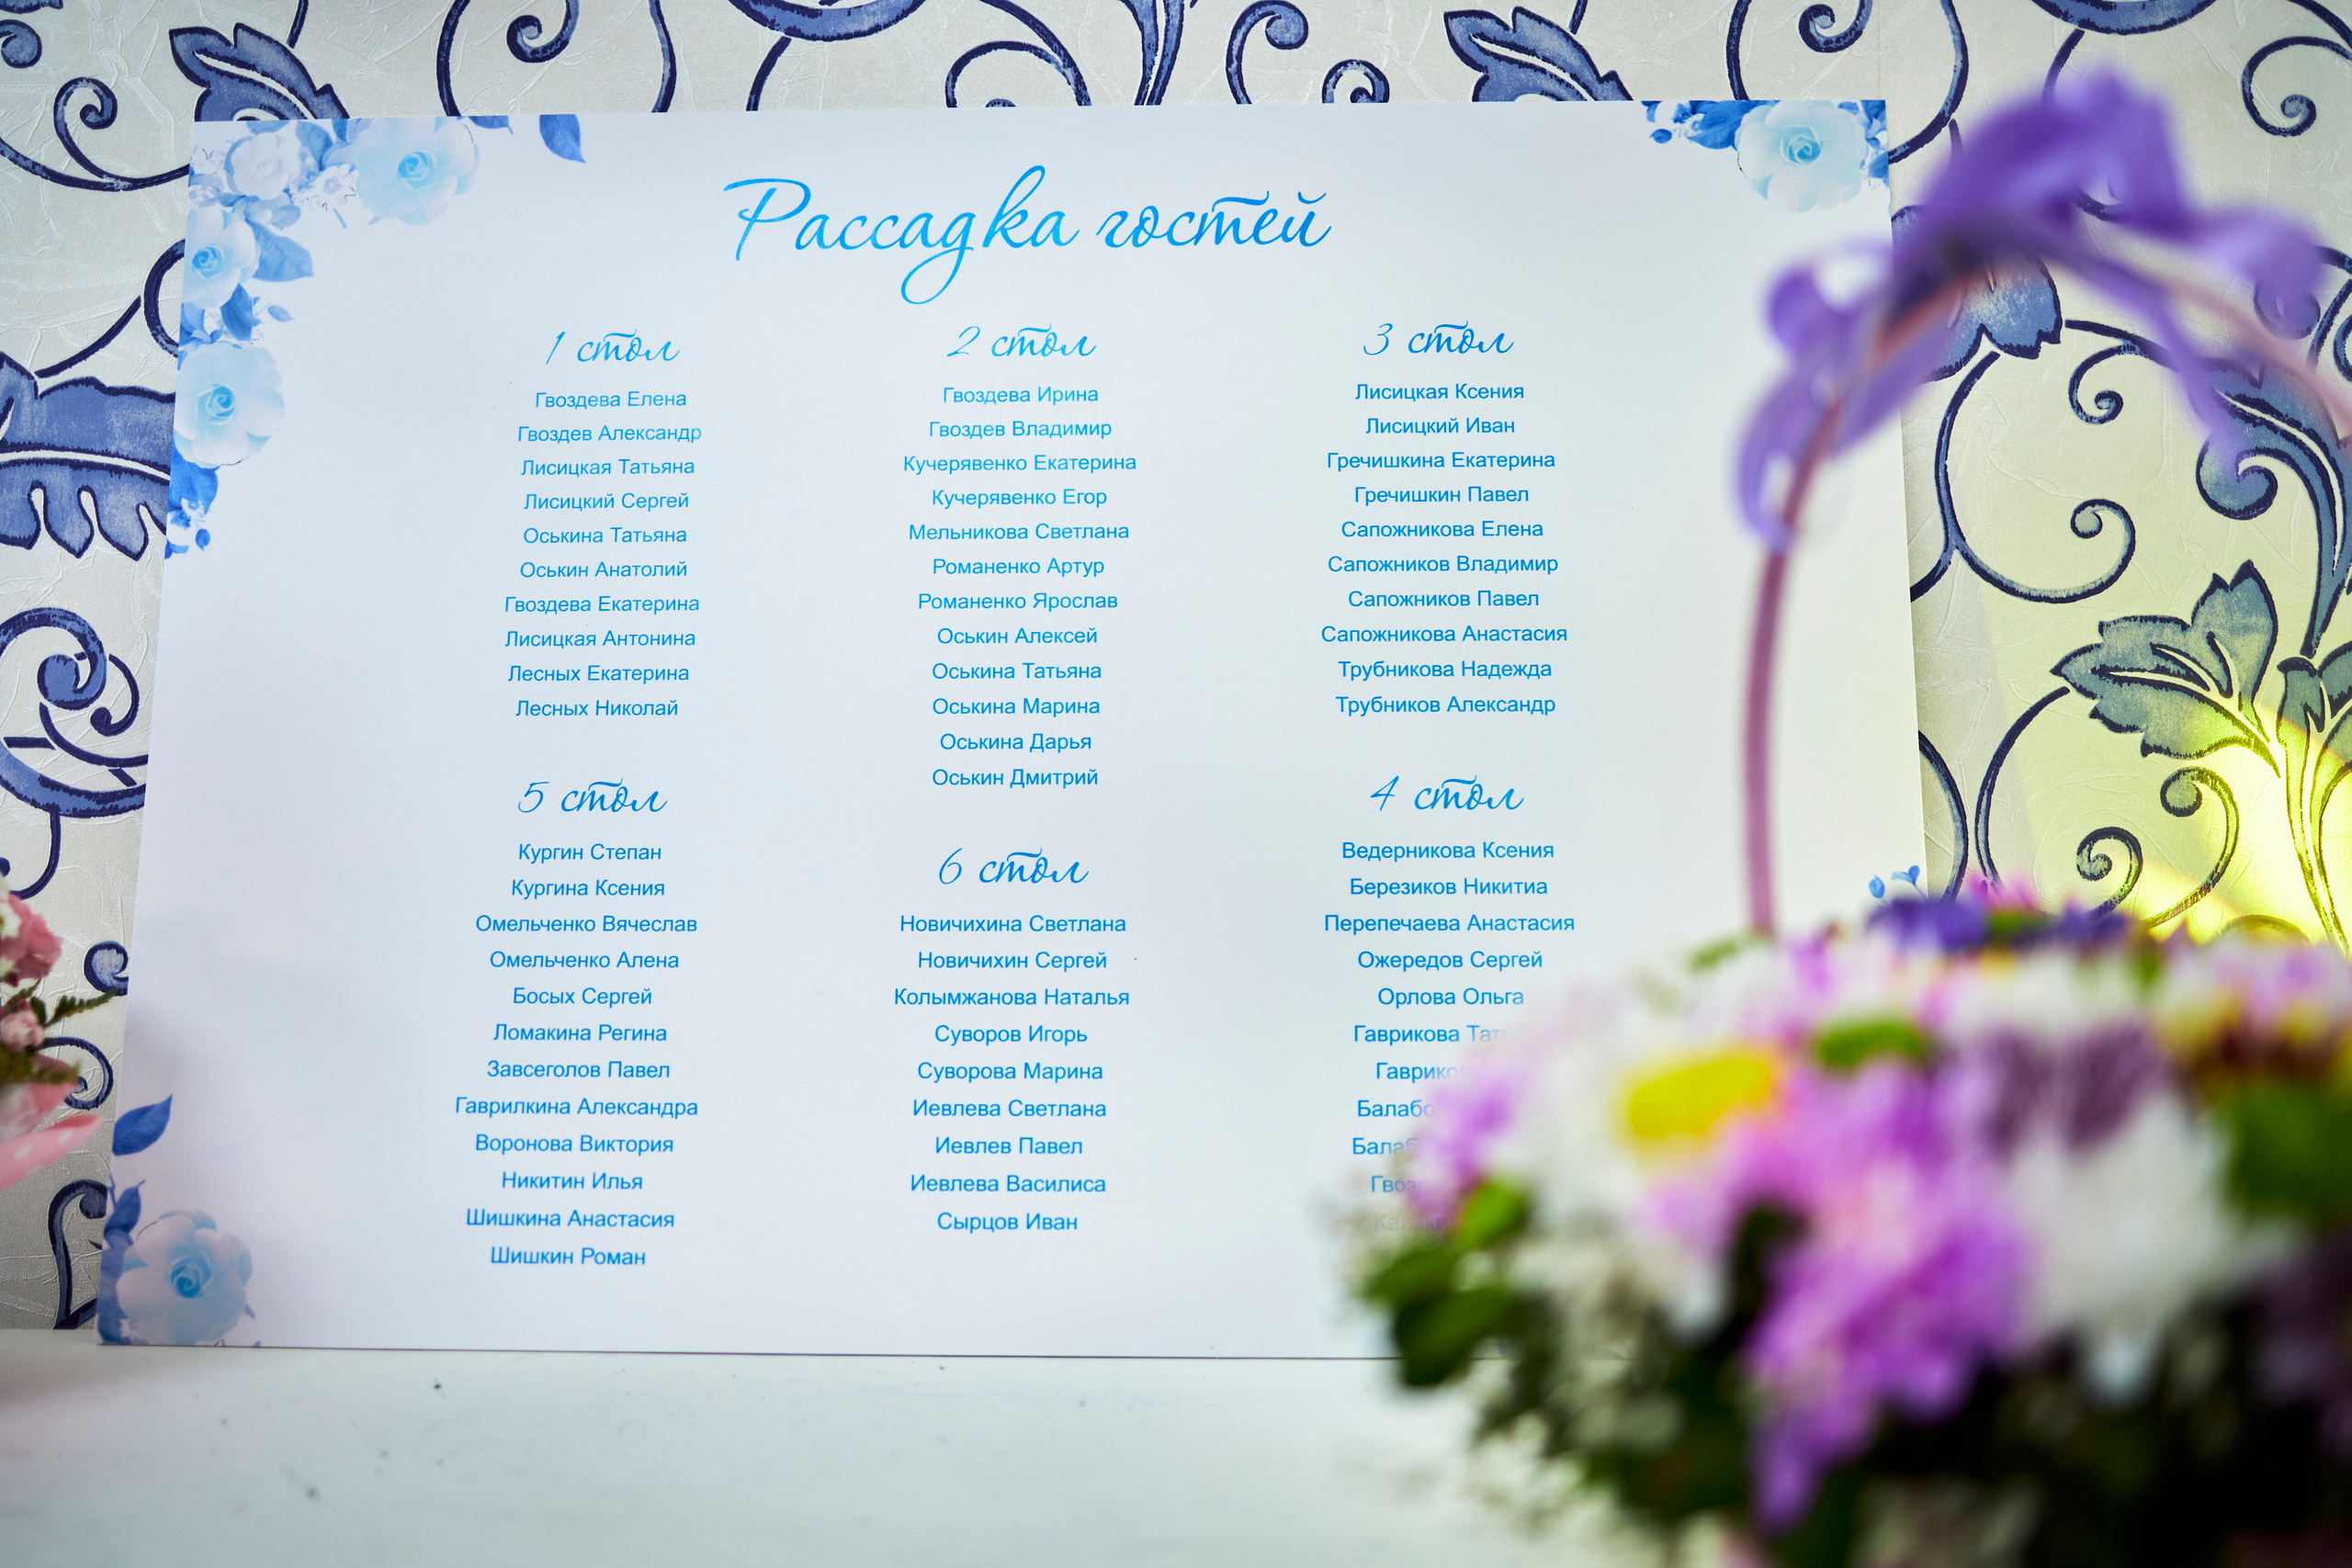 Рассадка гостей
1 стол
Гвоздева Елена
Гвоздев Александр
Лисицкая Татьяна
Лисицкий Сергей
Оськина Татьяна
Оськин Анатолий
Гвоздева Екатерина
Лисицкая Антонина
Лесных Екатерина
Лесных Николай
2 стол
Гвоздева Ирина
Гвоздев Владимир
Кучерявенко Екатерина
Кучерявенко Егор
Мельникова Светлана
Романенко Артур
Романенко Ярослав
Оськин Алексей
Оськина Татьяна
Оськина Марина
Оськина Дарья
Оськин Дмитрий
3 стол
Лисицкая Ксения
Лисицкий Иван
Гречишкина Екатерина
Гречишкин Павел
Сапожникова Елена
Сапожников Владимир
Сапожников Павел
Сапожникова Анастасия
Трубникова Надежда
Трубников Александр
5 стол
Кургин Степан
Кургина Ксения
Омельченко Вячеслав
Омельченко Алена
Босых Сергей
Ломакина Регина
Завсеголов Павел
Гаврилкина Александра
Воронова Виктория
Никитин Илья
Шишкина Анастасия
Шишкин Роман
6 стол
Новичихина Светлана
Новичихин Сергей
Колымжанова Наталья
Суворов Игорь
Суворова Марина
Иевлева Светлана
Иевлев Павел
Иевлева Василиса
Сырцов Иван
4 стол
Ведерникова Ксения
Березиков Никитиа
Перепечаева Анастасия
Ожередов Сергей
Орлова Ольга
Гаврикова